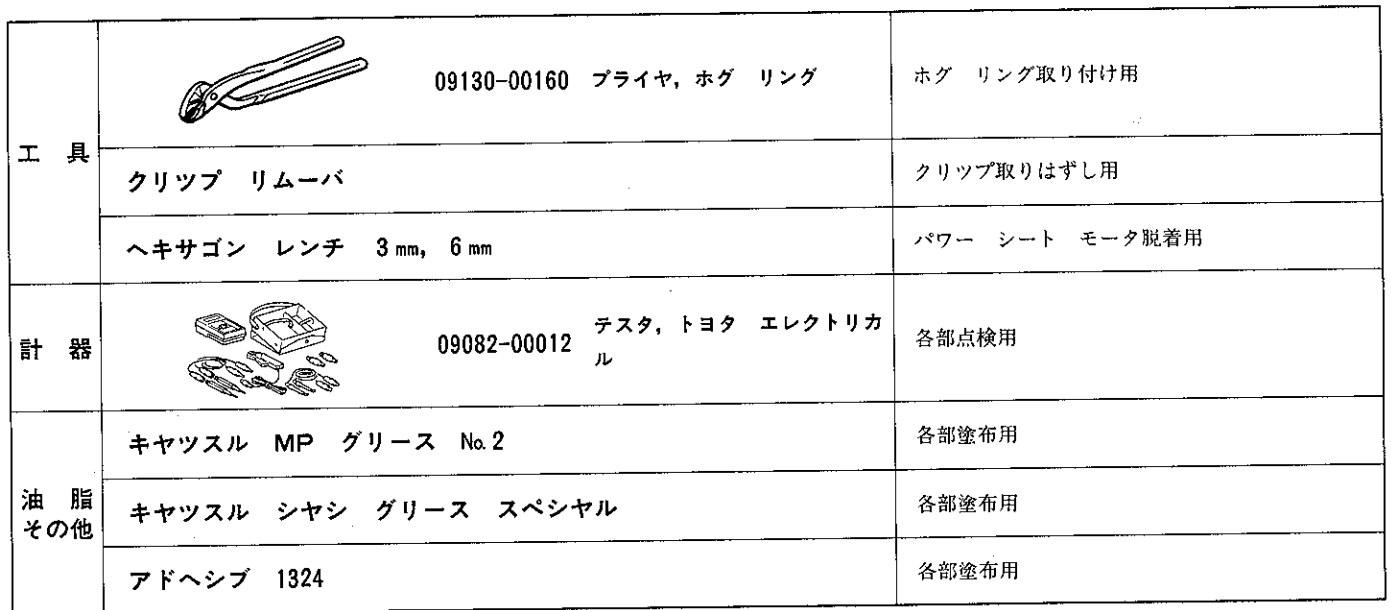 09130-00160 プライヤ, ホグ リング ホグ リング取り付け用
工 具
クリツプ リムーバ クリツプ取りはずし用
ヘキサゴン レンチ 3mm, 6mm パワー シート モータ脱着用
計 器 09082-00012 テスタ, トヨタ エレクトリカ
ル
各部点検用
キヤツスル MP グリース No.2 各部塗布用
油 脂
その他
キヤツスル シヤシ グリース スペシヤル 各部塗布用
アドヘシブ 1324 各部塗布用